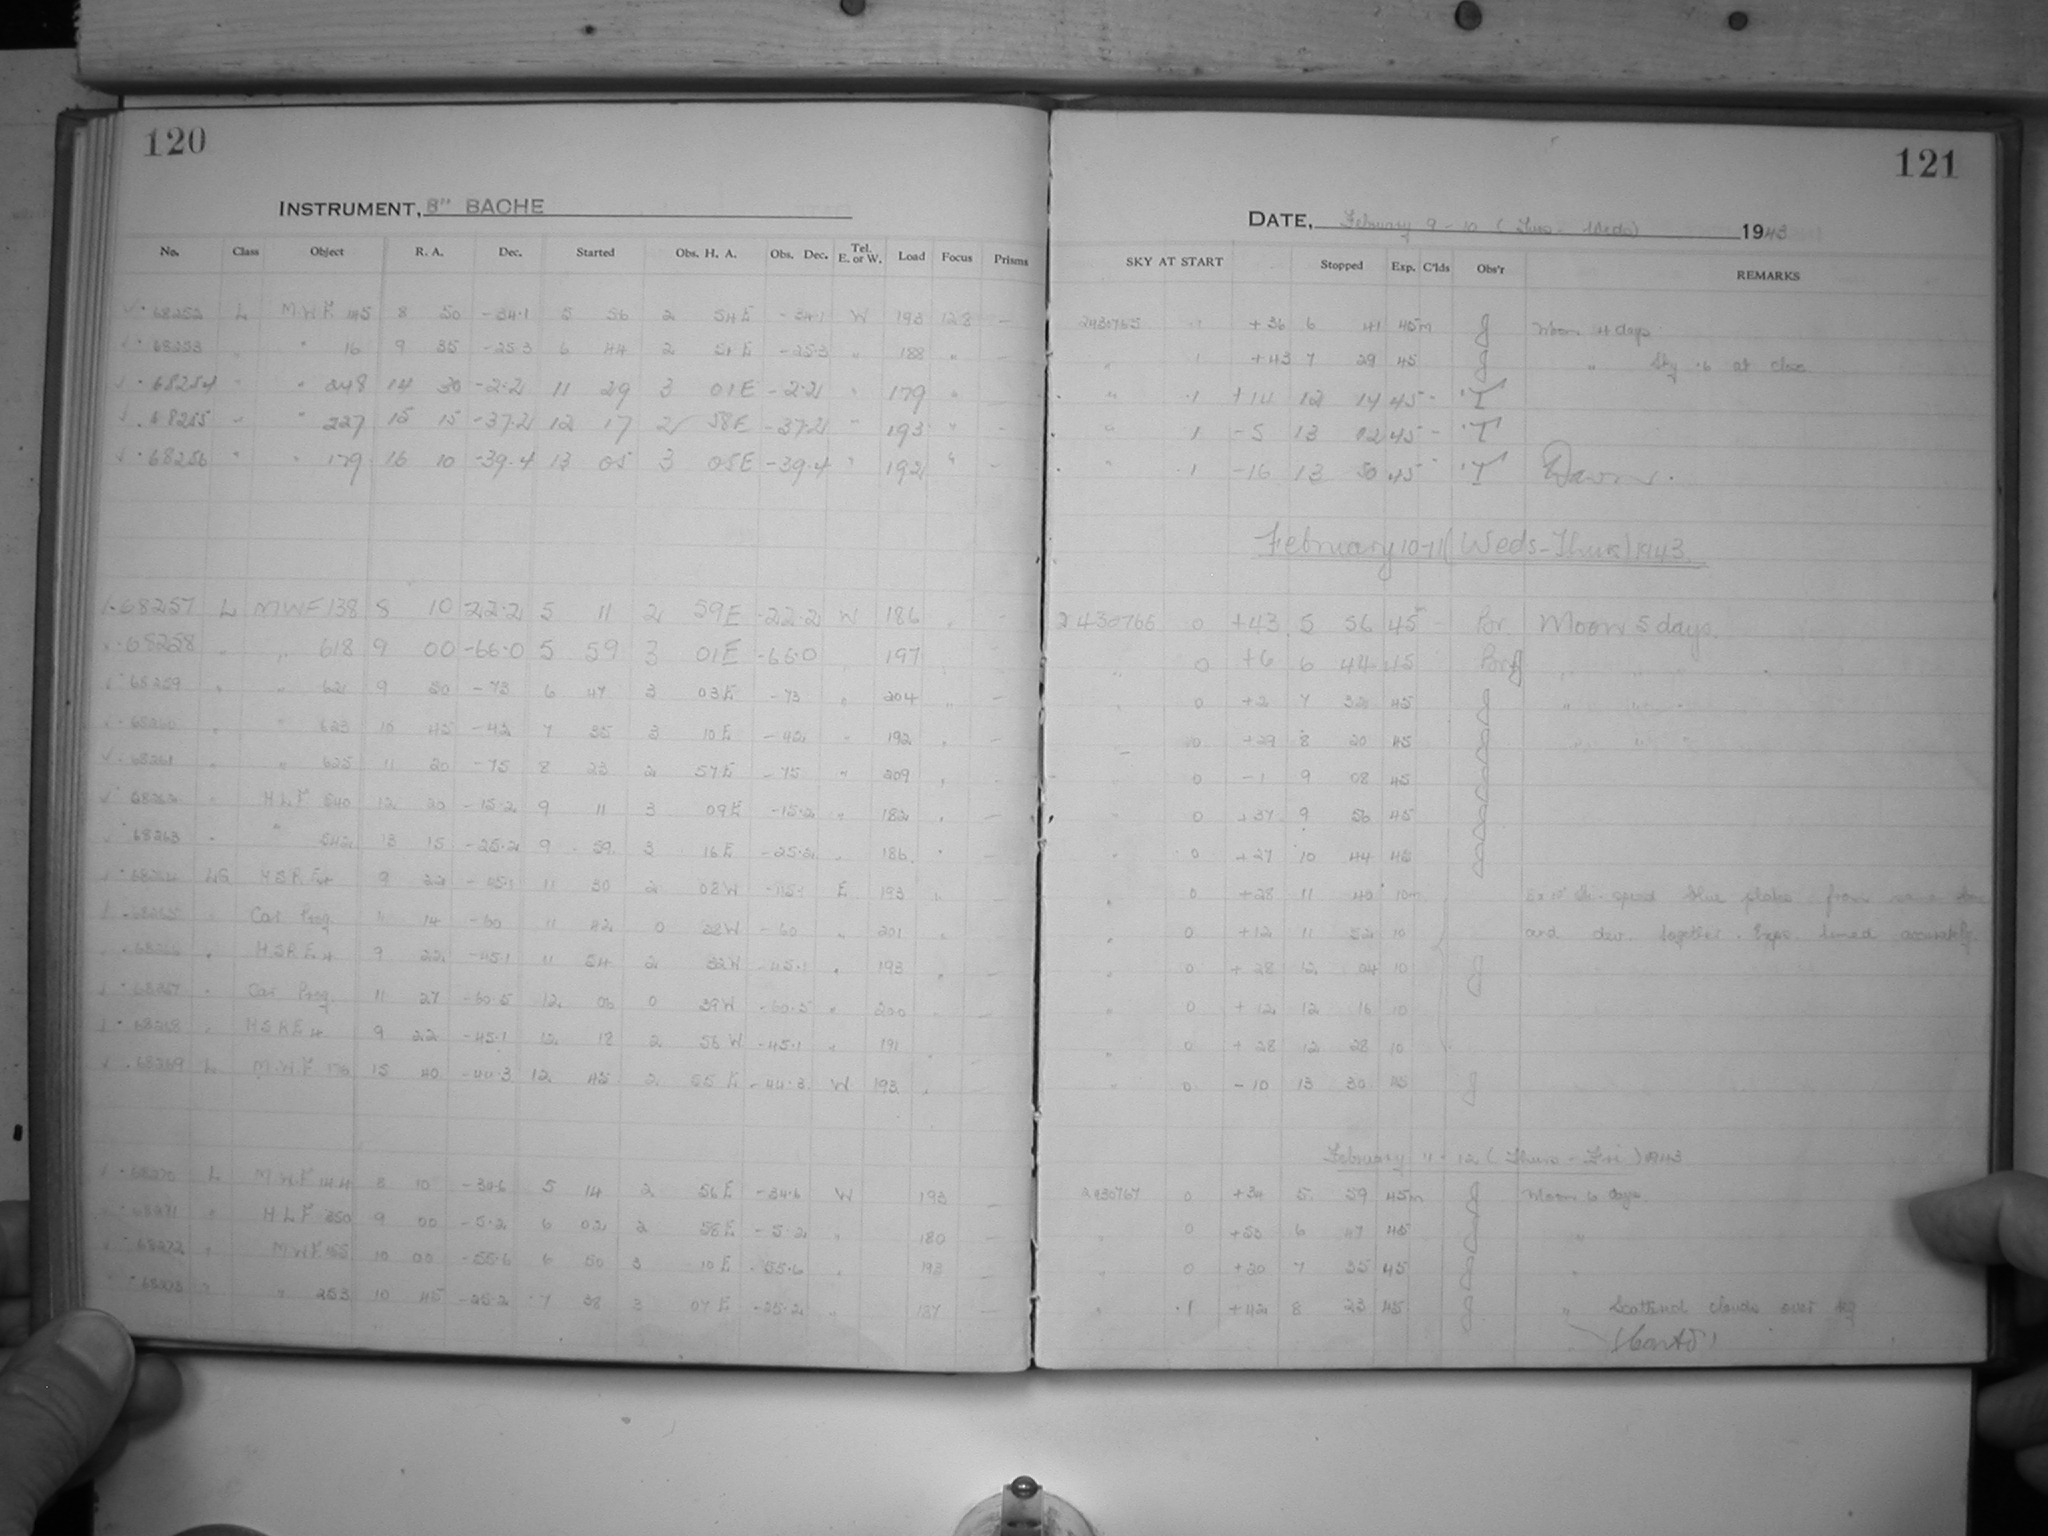 120
INSTRUMENT, 8" BACHE
No. Class Object R. A. Dec. Started Obs. H. A. Obs. Dec. Tel. E. or W. Load Focus Prisms
68252 L M.W.F. 145 8 50 -34.1 5 56 2 54E -34.1 W 193 12.8 —
68253 " " 16 9 35 -25.3 6 44 2 51E -25.3 " 188 " —
68254 " " 248 14 30 -2.2 11 29 3 01E -2.2 " 179 " —
68255 " " 227 15 15 -37.2 12 17 2 58E -37.2 " 193 " —
68256 " " 179 16 10 -39.4 13 05 3 05E -39.4 " 192 " —
68257 L MWF 138 8 10 -22.2 5 11 2 59E -22.2 W 186 —
68258 " " 618 9 00 -66.0 5 59 3 01E -66.0 197
68259 " " 621 9 50 -73 6 47 3 03E -73 " 204 " —
68260 " " 623 10 45 -42 7 35 3 10E -42 " 192 " —
68261 " " 625 11 20 -75 8 23 2 57E -75 " 209 " —
68262 " HLF 540 12 20 -15.2 9 11 3 09E -15.2 " 182 " —
68263 " " 542 13 15 -25.2 9 59 3 16E -25.2 " 186 " —
68264 LS HSRE4 9 22 -45.1 11 30 2 08W -45.1 E 193 " —
68265 " Car Prog. 11 14 -60 11 42 0 28W -60 " 201 " —
68266 " HSRE4 9 22 -45.1 11 54 2 32W -45.1 " 193 " —
68267 " Car Prog. 11 27 -60.5 12 06 0 39W -60.5 " 200 " —
68268 " HSRE4 9 22 -45.1 12 18 2 56W -45.1 " 191
68269 L M.W.F. 15 40 -44.3 12 45 2 55E -44.3 W 193
68270 L M.W.F. 144 8 10 -34.6 5 14 2 56E -34.6 W 193 —
68271 " HLF 350 9 00 -5.2 6 02 2 58E -5.2 " 180 —
68272 " MWF 10 00 -55.6 6 50 3 10E -55.6 " 193 —
68273 " " 253 10 45 -25.2 7 38 3 07E -25.2 " 187 —
121
DATE, February 9-10 (Tues - Weds) 1943
SKY AT START Stopped Exp. C'lds Obs'r REMARKS
2430765 .1 +36 6 41 45m J Moon 4 days
" 1 +43 7 29 45 J " Sky .6 at close
" .1 +14 12 14 45 T
" 1 -5 13 02 45 T
" .1 -16 13 50 45 T Dawn.
February 10-11 (Weds-Thurs) 1943.
2430766 0 +43 5 56 45m Br. Moon 5 days.
" 0 +6 6 44 45 " " "
" 0 +2 7 32 45 " " "
0 +29 8 20 45 " " "
0 -1 9 08 45
" 0 +37 9 56 45
" 0 +27 10 44 45
" 0 +28 11 40 10m 8x10 Hi-speed blue plates from same box
" 0 +12 11 52 10 and dev. together. Exps. timed accurately.
" 0 +28 12 04 10
" 0 +12 12 16 10
" 0 +28 12 28 10
" 0 -10 13 30 45
February 11-12 (Thurs - Fri) 1943
2430767 0 +34 5 59 45m Moon 6 days.
" 0 +53 6 47 45 "
" 0 +20 7 35 45 "
" .1 +42 8 23 45 " Scattered clouds over sky
(Contd)